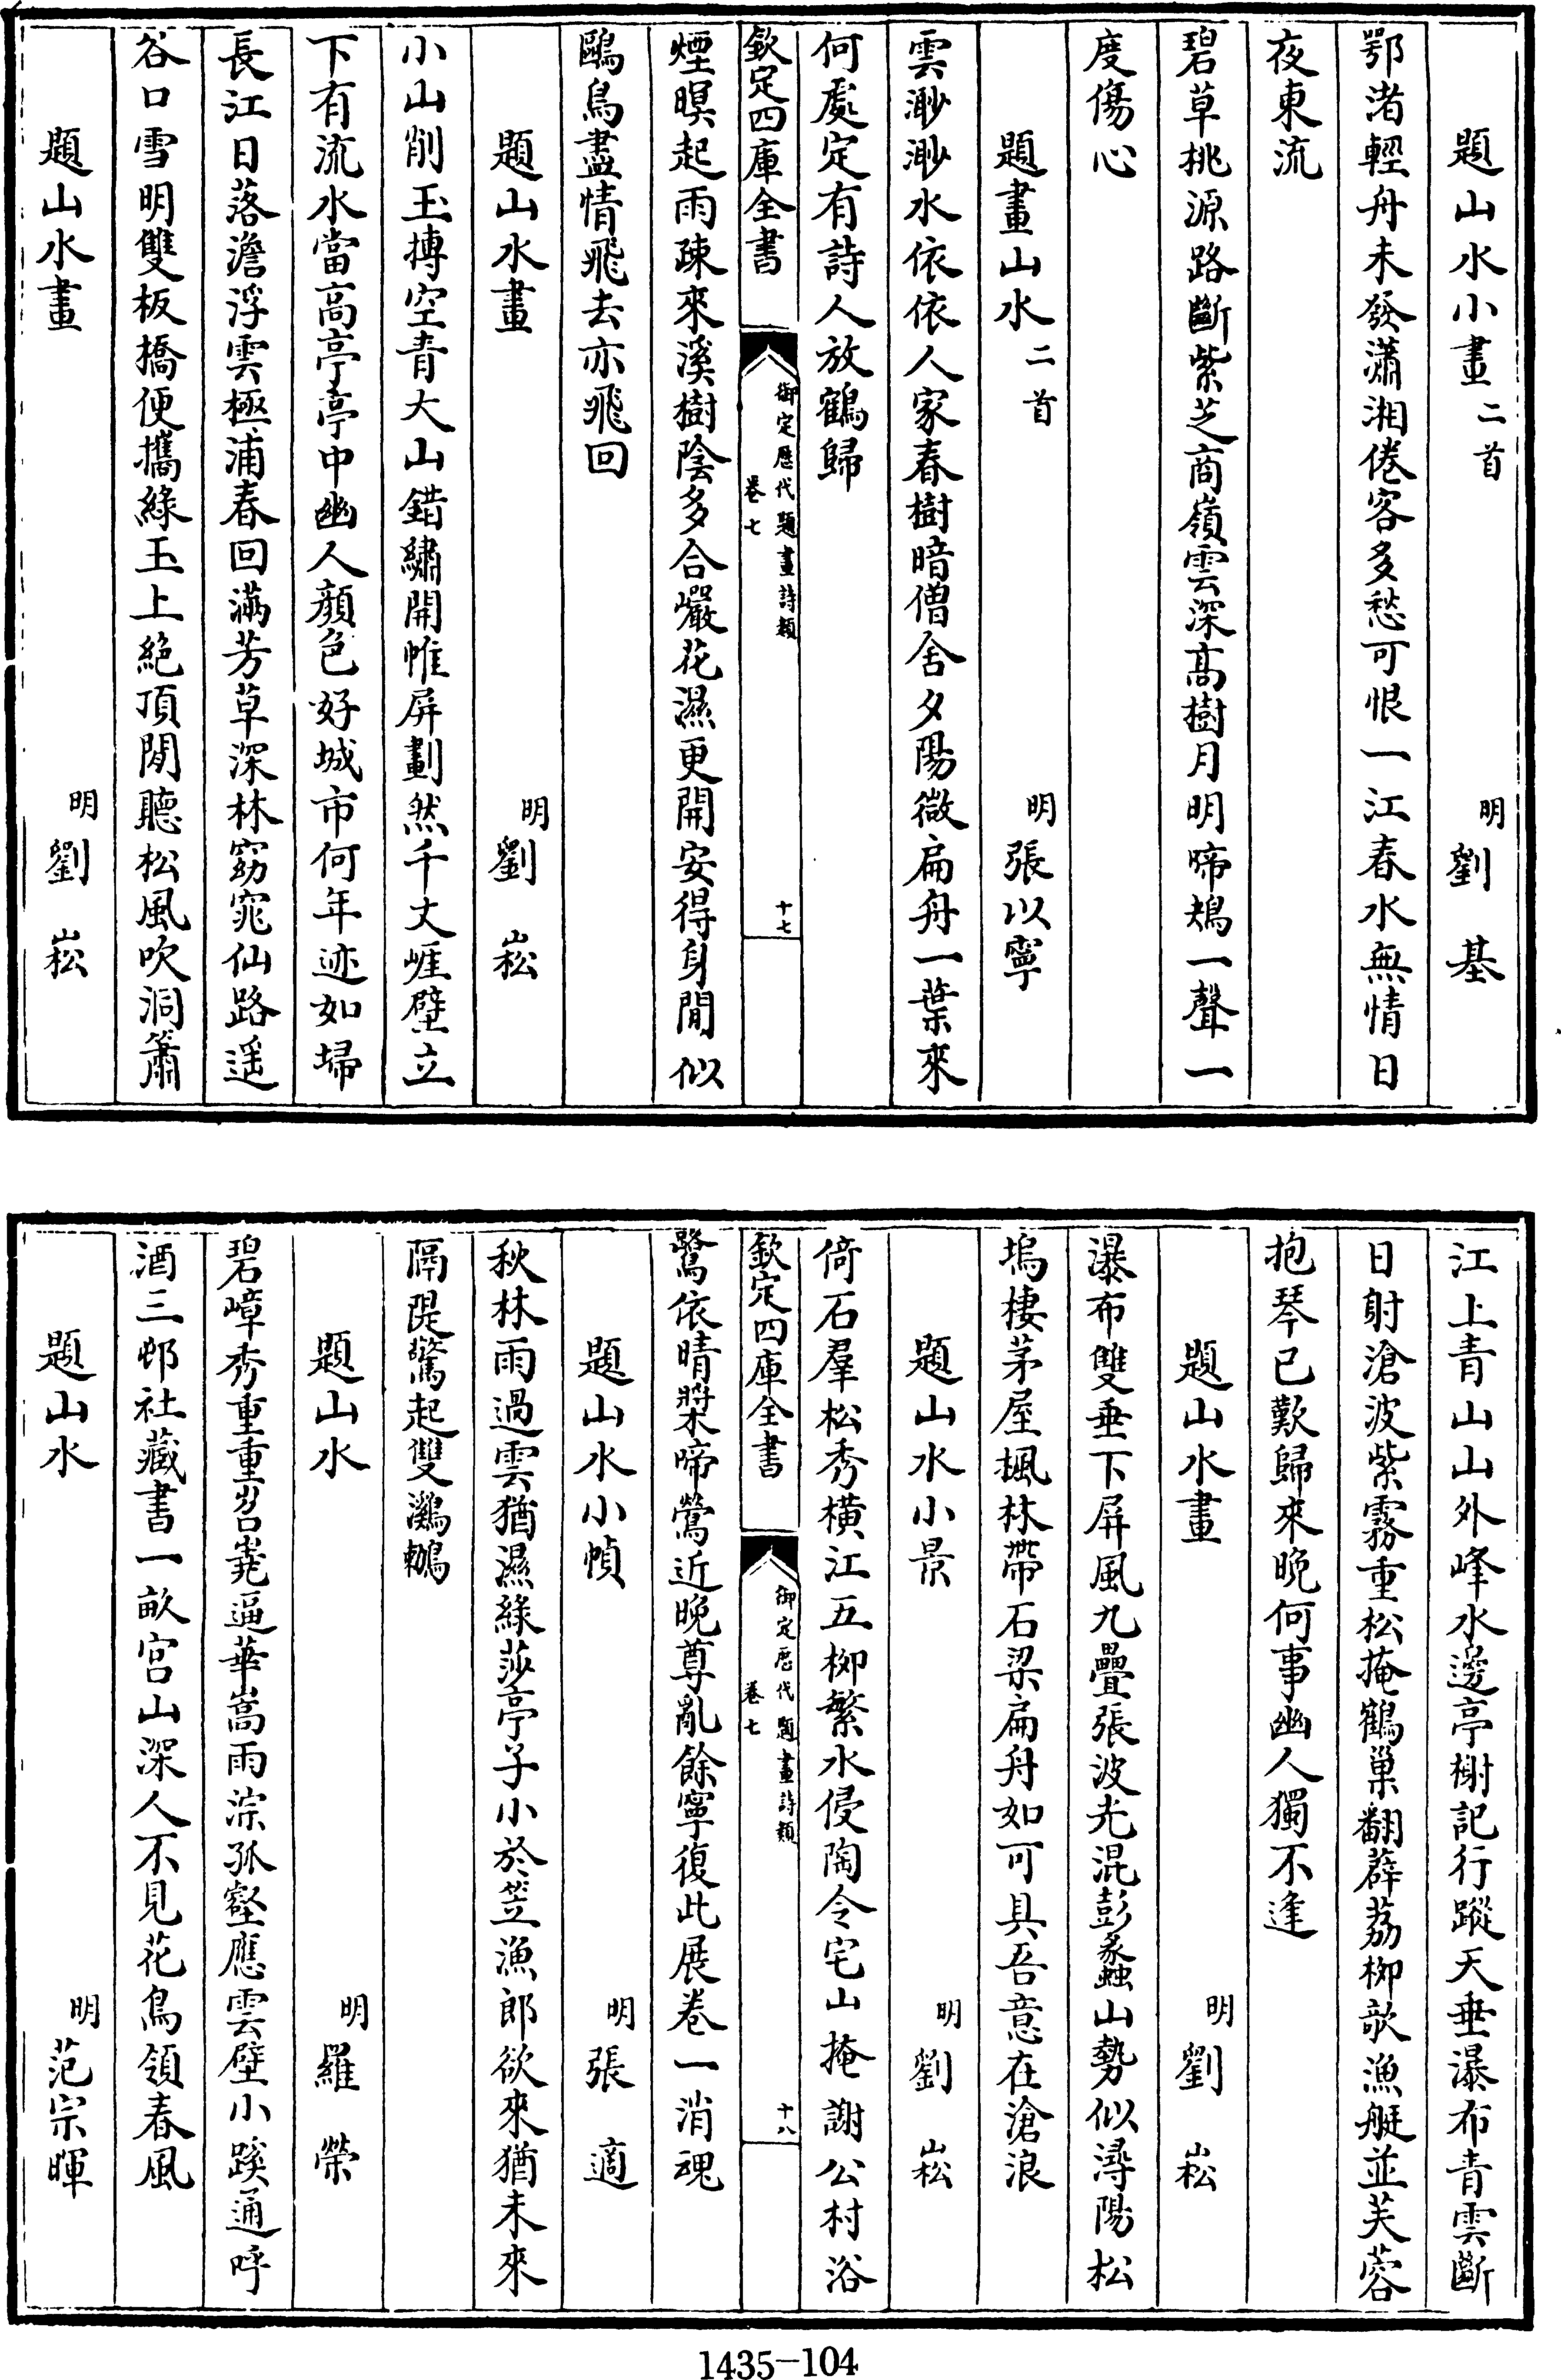 題山水小畫二首 明 劉基
鄂渚輕舟未發瀟湘倦客多愁可恨一江春水無情日
夜東流
碧草桃源路斷紫芝商嶺雲深髙樹月明啼鴂一聲一
度傷心
題畫山水二首 明 張以寧
雲渺渺水依依人家春樹暗僧舍夕陽微扁舟一葉來
何處定有詩人放鶴歸
欽定四庫全書 御定歷代題畫詩類 卷七 十七
煙暝起雨疎來溪樹陰多合巖花濕更開安得身閒似
鷗鳥盡情飛去亦飛回
題山水畫 明 劉崧
小山削玉摶空青大山錯繡開帷屏劃然千丈崕壁立
下有流水當高亭亭中幽人顔色好城市何年迹如埽
長江日落澹浮雲極浦春回滿芳草深林窈窕仙路遥
谷口雪明雙板橋便攜緑玉上絶頂閒聽松風吹洞簫
題山水畫 明 劉崧
江上青山山外峰水邊亭榭記行蹤天垂瀑布青雲斷
日射滄波紫霧重松掩鶴巢翻薜荔柳欹漁艇並芙蓉
抱琴已歎歸來晚何事幽人獨不逢
題山水畫 明 劉崧
瀑布雙垂下屏風九疊張波光混彭蠡山勢似潯陽松
塢棲茅屋楓林帶石梁扁舟如可具吾意在滄浪
題山水小景 明 劉崧
倚石羣松秀横江五柳繁水侵陶令宅山掩謝公村浴
欽定四庫全書 御定歷代題畫詩類 卷七 十八
鷺依晴槳啼鶯近晚尊亂餘寧復此展卷一消魂
題山水小幀 明 張適
秋林雨過雲猶濕緑莎亭子小於笠漁郎欲來猶未來
隔隄驚起雙鸂鶒
題山水 明 羅榮
碧嶂秀重重岧嶤逼華嵩雨淙孤壑應雲壁小蹊通呼
酒三邨社藏書一畝宫山深人不見花鳥領春風
題山水 明 范宗暉
1435-104